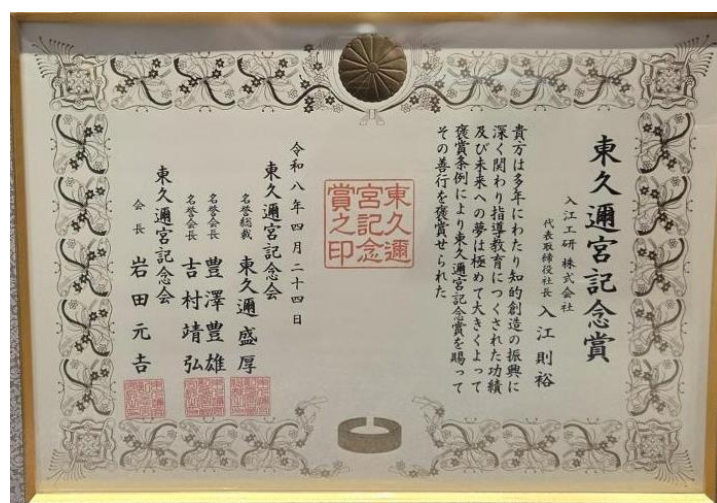 東久邇宮記念賞
入江工研 株式会社
代表取締役社長 入江則裕
貴方は多年にわたり知的創造の振興に
深く関わり指導教育につくされた功績
及び未来への夢は極めて大きくよって
褒賞条例により東久邇宮記念賞を賜って
その善行を褒賞せられた
東久邇
宮記念
賞之印
令和八年四月二十四日
東久邇宮記念会
名誉総裁 東久邇盛厚
名誉会長 豊澤豊雄
名誉会長 吉村靖弘
東久邇宮記念会
会長 岩田元吉